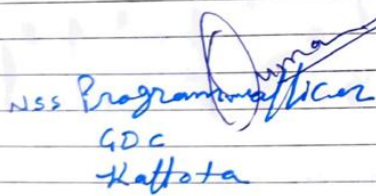 NSS Programme officer
GDC
Kattota